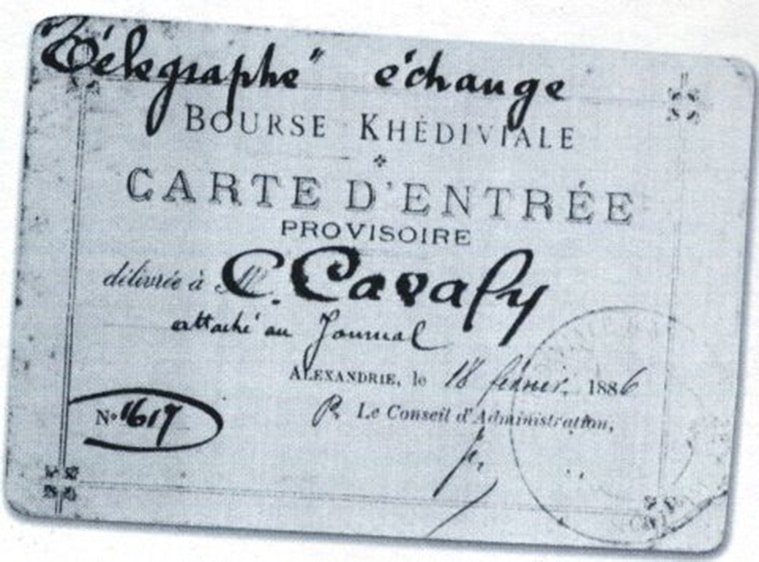 "Télégraphe" échange
BOURSE KHÉDIVIALE
CARTE D'ENTRÉE
PROVISOIRE
délivrée à Mr C. Cavafy
attaché au Journal
ALEXANDRIE, le 18 février 1886
No 1617
P. Le Conseil d'Administration,